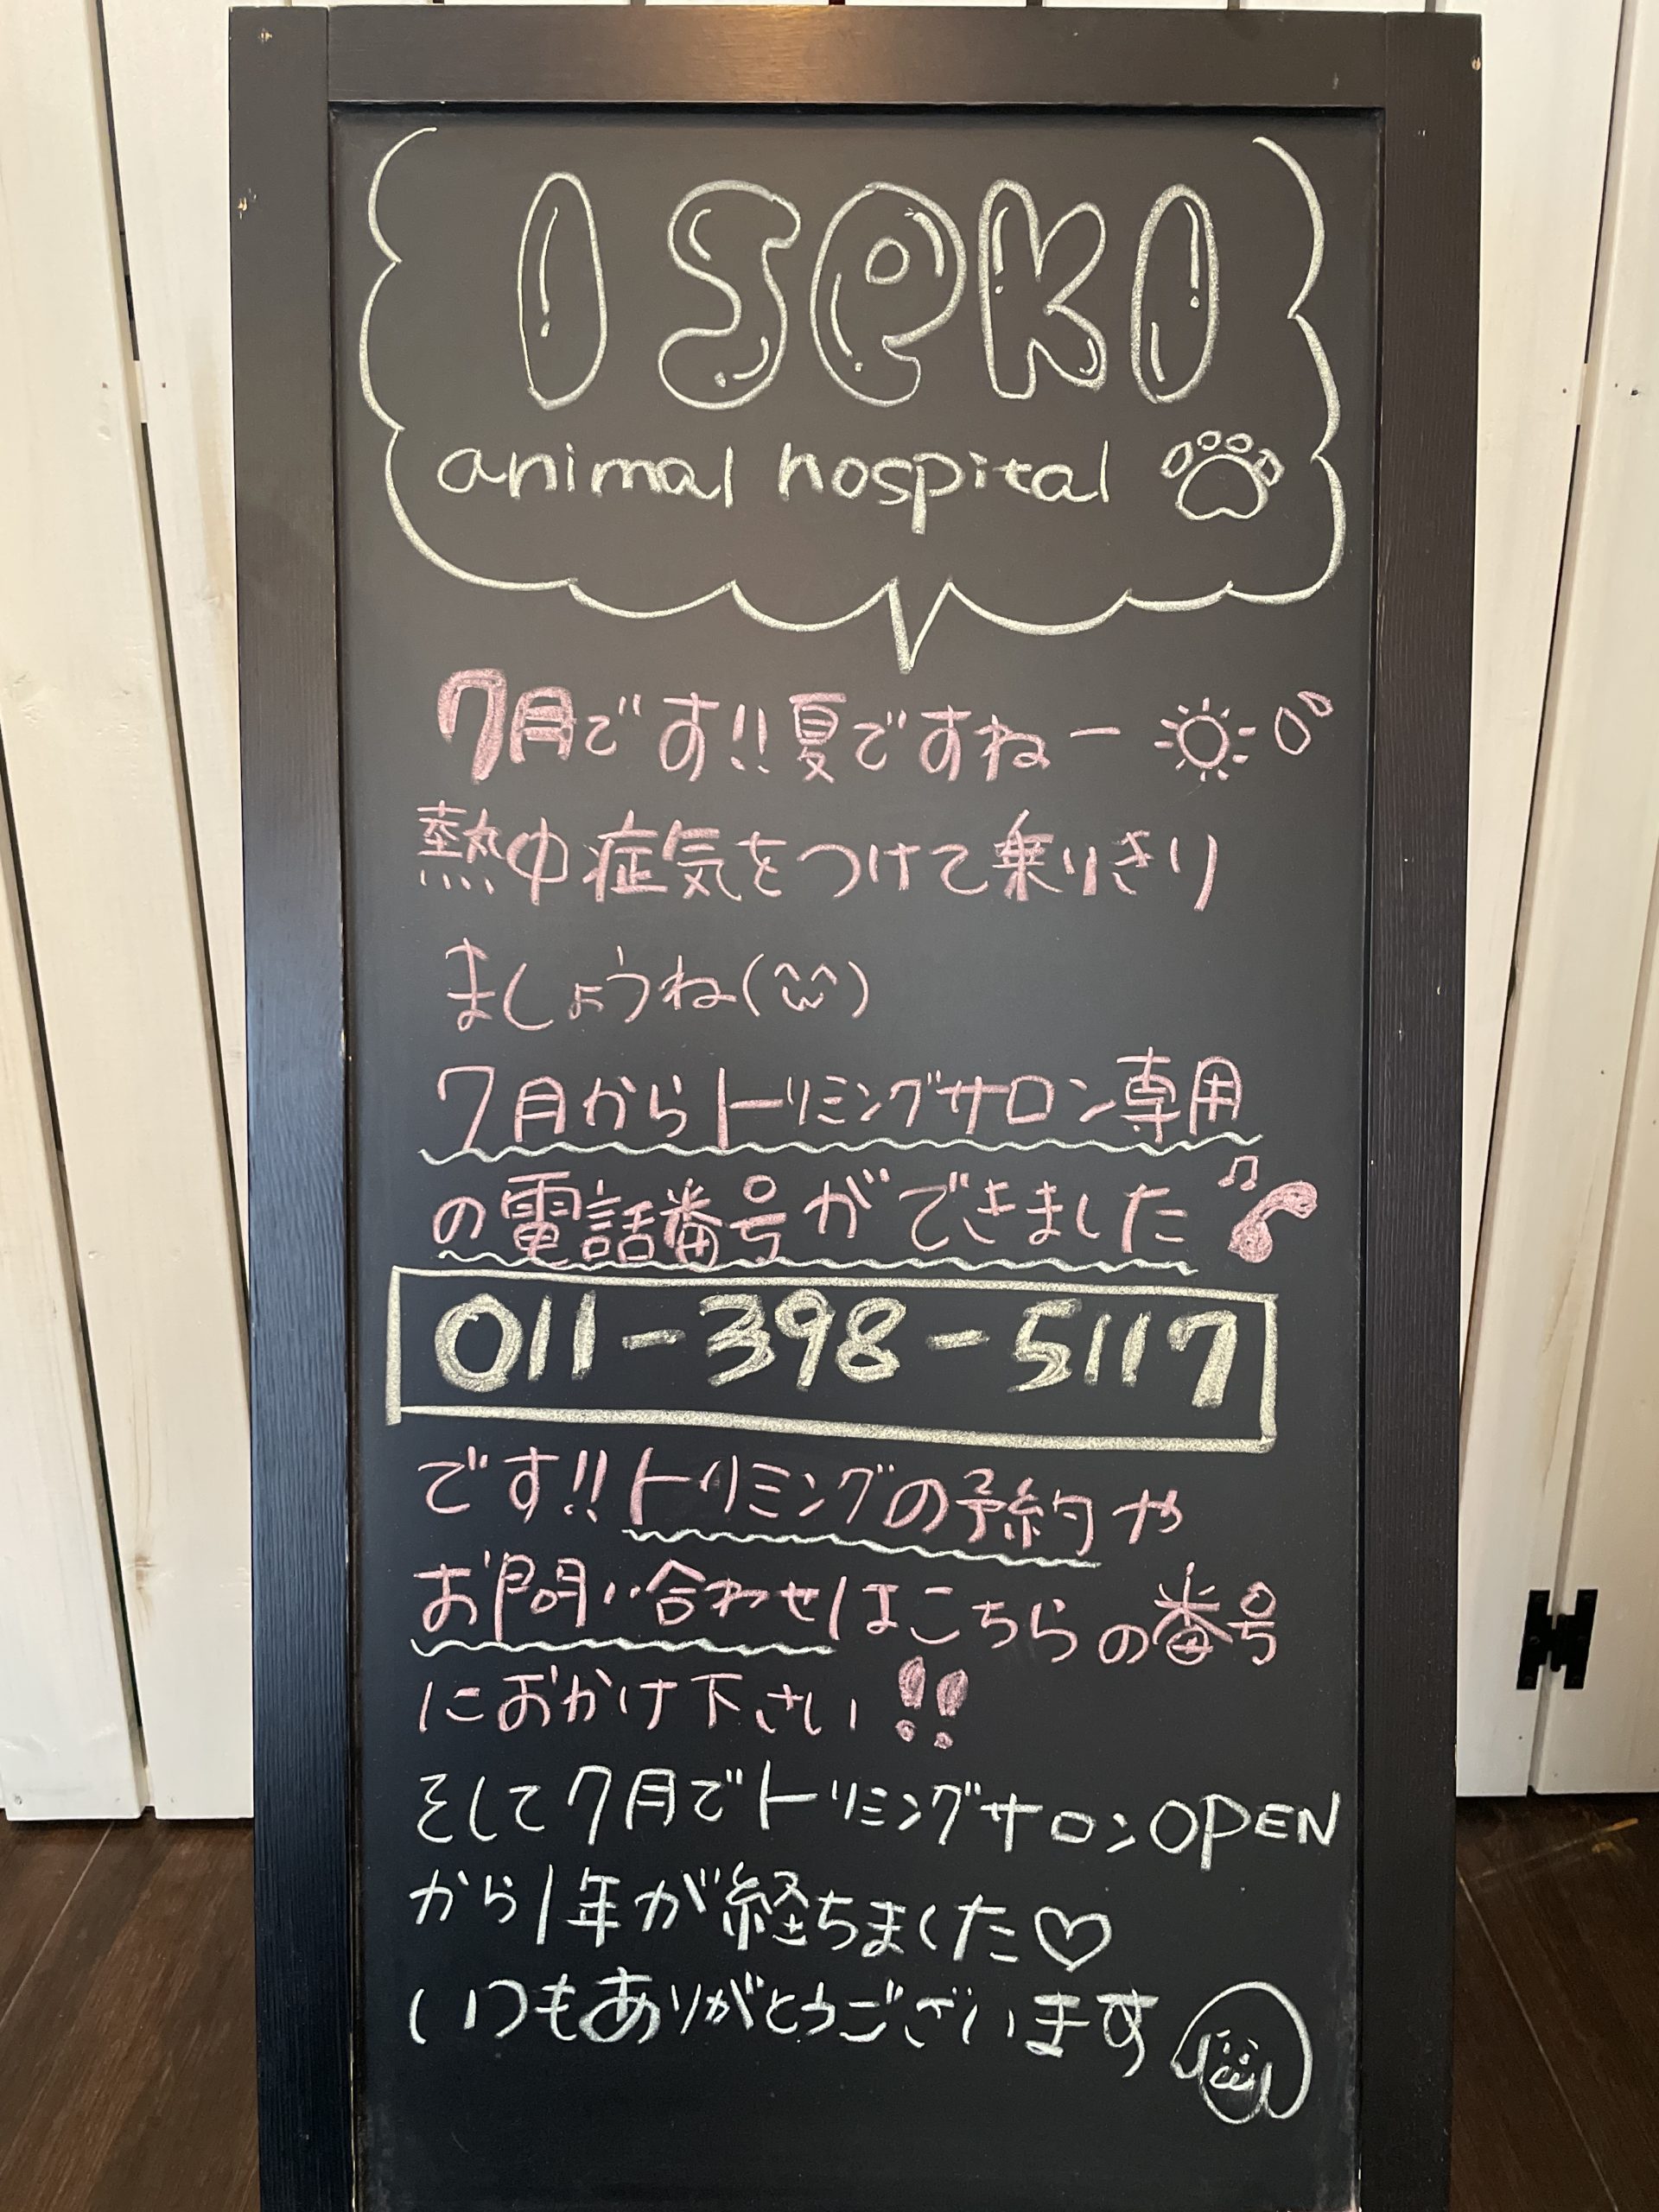 ISeKI
animal hospital
7月です!!夏ですねー
熱中症気をつけて乗りきり
ましょうね(^w^)
7月からトリミングサロン専用
の電話番号ができました♫
011-398-5117
です!!トリミングの予約や
お問い合わせはこちらの番号
におかけ下さい!!
そして7月でトリミングサロンOPEN
から1年が経ちました♡
いつもありがとうございます